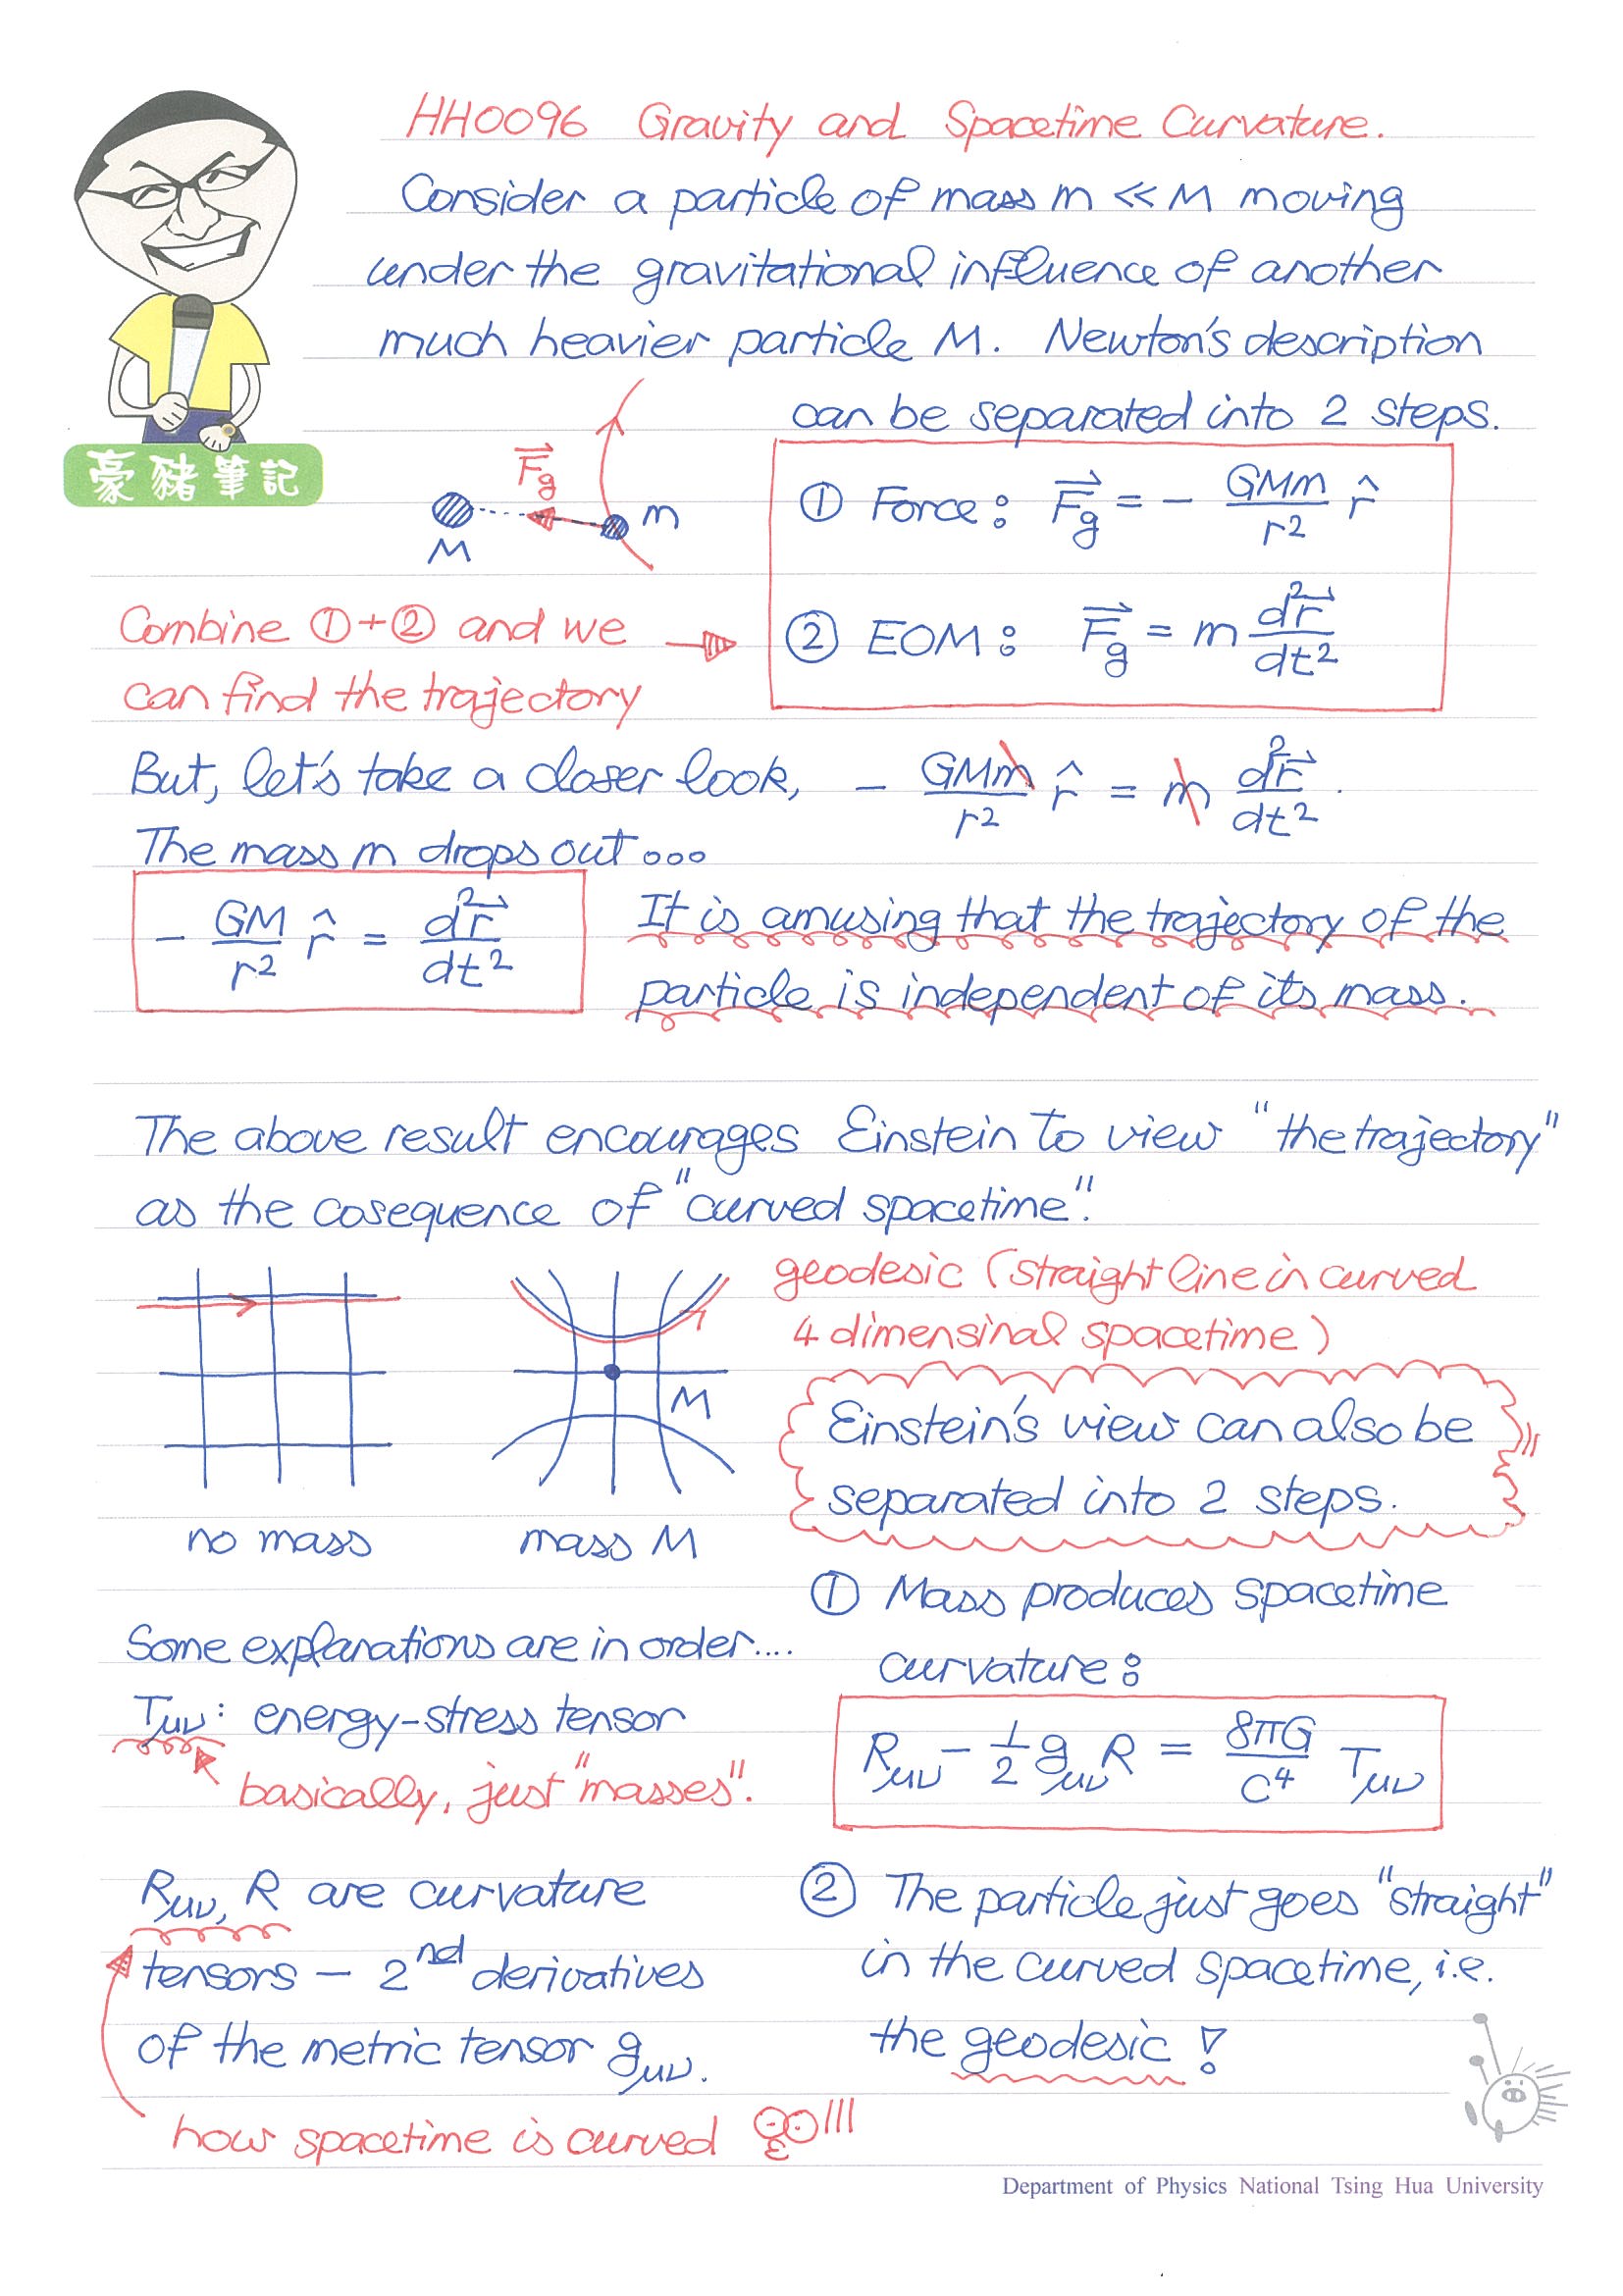 HH0096 Gravity and Spacetime Curvature.
Consider a particle of mass m << M moving
under the gravitational influence of another
much heavier particle M. Newton's description
can be separated into 2 steps.
豪豬筆記
F⃗g
M
m
① Force: F⃗g = - GMm/r² r̂
② EOM: F⃗g = m d²r⃗/dt²
Combine ①+② and we
can find the trajectory
But, let's take a closer look, - GMm/r² r̂ = m d²r⃗/dt².
The mass m drops out...
- GM/r² r̂ = d²r⃗/dt²
It is amusing that the trajectory of the
particle is independent of its mass.
The above result encourages Einstein to view "the trajectory"
as the cosequence of "curved spacetime".
geodesic (straight line in curved
4 dimensinal spacetime)
M
no mass
mass M
Einstein's view can also be
separated into 2 steps.
① Mass produces spacetime
curvature:
Rμν - 1/2 gμν R = 8πG/c⁴ Tμν
Some explanations are in order....
Tμν: energy-stress tensor
basically, just "masses".
Rμν, R are curvature
tensors - 2nd derivatives
of the metric tensor gμν.
how spacetime is curved !!!
② The particle just goes "straight"
in the curved spacetime, i.e.
the geodesic!
Department of Physics National Tsing Hua University